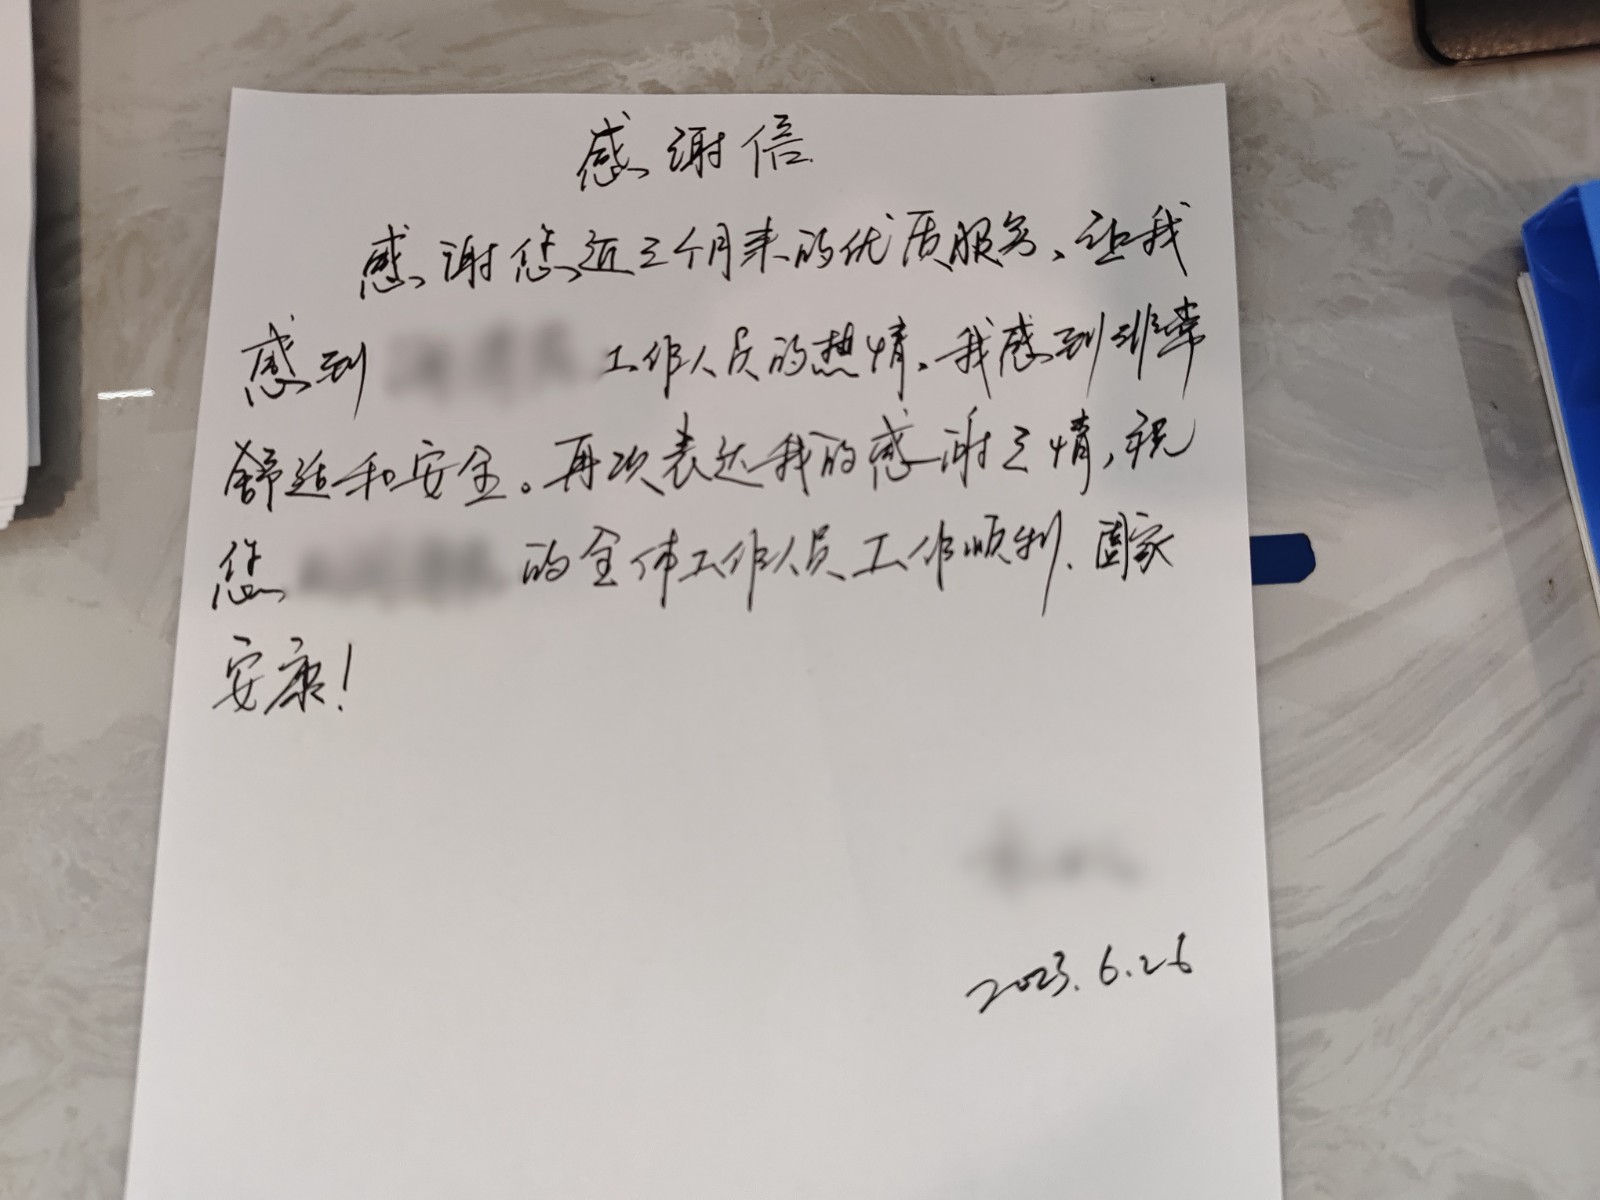 感谢信
感谢您近三个月来的优质服务、让我
感到 工作人员的热情、我感到非常
舒适和安全。再次表达我的感谢之情,祝
您 的全体工作人员工作顺利、国家
安康!
2023.6.26